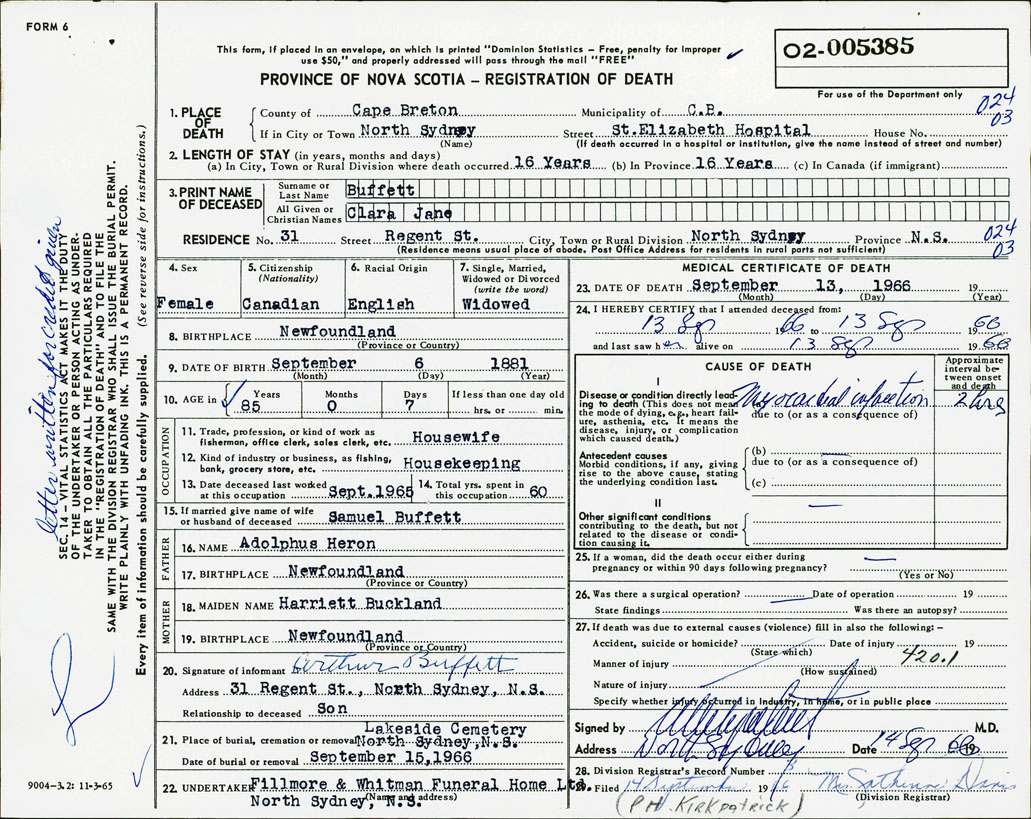 FORM 6
This form, if placed in an envelope, on which is printed "Dominion Statistics – Free, penalty for improper
use $50," and properly addressed will pass through the mail "FREE"
PROVINCE OF NOVA SCOTIA – REGISTRATION OF DEATH
02-005385
For use of the Department only
024
03
1. PLACE OF DEATH
County of Cape Breton Municipality of C.B.
If in City or Town North Sydney Street St.Elizabeth Hospital House No.
(Name) (If death occurred in a hospital or institution, give the name instead of street and number)
2. LENGTH OF STAY (in years, months and days)
(a) In City, Town or Rural Division where death occurred 16 Years (b) In Province 16 Years (c) In Canada (if immigrant)
3. PRINT NAME OF DECEASED
Surname or Last Name Buffett
All Given or Christian Names Clara Jane
RESIDENCE No. 31 Street Regent St. City, Town or Rural Division North Sydney Province N.S.
024
03
(Residence means usual place of abode. Post Office Address for residents in rural parts not sufficient)
4. Sex
Female
5. Citizenship (Nationality)
Canadian
6. Racial Origin
English
7. Single, Married, Widowed or Divorced (write the word)
Widowed
8. BIRTHPLACE Newfoundland
(Province or Country)
9. DATE OF BIRTH September 6 1881
(Month) (Day) (Year)
10. AGE in Years 85 Months 0 Days 7 If less than one day old hrs. or min.
OCCUPATION
11. Trade, profession, or kind of work as
fisherman, office clerk, sales clerk, etc. Housewife
12. Kind of industry or business, as fishing,
bank, grocery store, etc. Housekeeping
13. Date deceased last worked
at this occupation Sept.1965
14. Total yrs. spent in
this occupation 60
15. If married give name of wife
or husband of deceased Samuel Buffett
FATHER
16. NAME Adolphus Heron
17. BIRTHPLACE Newfoundland
(Province or Country)
MOTHER
18. MAIDEN NAME Harriett Buckland
19. BIRTHPLACE Newfoundland
(Province or Country)
20. Signature of informant Arthur Buffett
Address 31 Regent St., North Sydney, N.S.
Relationship to deceased Son
Lakeside Cemetery
21. Place of burial, cremation or removal North Sydney,N.S.
Date of burial or removal September 15,1966
22. UNDERTAKER Fillmore & Whitman Funeral Home Ltd.
North Sydney, N.S.
(Name and address)
MEDICAL CERTIFICATE OF DEATH
23. DATE OF DEATH September 13, 1966 19
(Month) (Day) (Year)
24. I HEREBY CERTIFY that I attended deceased from:
13 Sep 1966 to 13 Sep 1966
and last saw her alive on 13 Sep 1966
CAUSE OF DEATH
Approximate interval between onset and death
I
Disease or condition directly leading to death (This does not mean
the mode of dying, e.g., heart failure, asthenia, etc. It means the
disease, injury, or complication
which caused death.)
Myocardial infarction
due to (or as a consequence of)
2 hrs
Antecedent causes
Morbid conditions, if any, giving
rise to the above cause, stating
the underlying condition last.
(b)
due to (or as a consequence of)
(c)
II
Other significant conditions
contributing to the death, but not
related to the disease or condition causing it.
25. If a woman, did the death occur either during
pregnancy or within 90 days following pregnancy?
(Yes or No)
26. Was there a surgical operation? Date of operation 19
State findings Was there an autopsy?
27. If death was due to external causes (violence) fill in also the following: –
Accident, suicide or homicide? Date of injury 19
(State which)
420.1
Manner of injury
(How sustained)
Nature of injury
Specify whether injury occurred in Industry, in home, or in public place
Signed by M.D.
Address North Sydney Date 14 Sep 66 19
28. Division Registrar's Record Number
29. Filed 14 September 1966 Mrs. Davis
(Division Registrar)
(P.H. KIRKPATRICK)
letter written for credit given
SEC. 14 – VITAL STATISTICS ACT MAKES IT THE DUTY
OF THE UNDERTAKER OR PERSON ACTING AS UNDERTAKER TO OBTAIN ALL THE PARTICULARS REQUIRED
IN THE "REGISTRATION OF DEATH" AND TO FILE THE
SAME WITH THE DIVISION REGISTRAR WHO SHALL ISSUE THE BURIAL PERMIT.
WRITE PLAINLY WITH UNFADING INK. THIS IS A PERMANENT RECORD.
Every item of information should be carefully supplied. (See reverse side for instructions.)
9004-3.2: 11-3-65